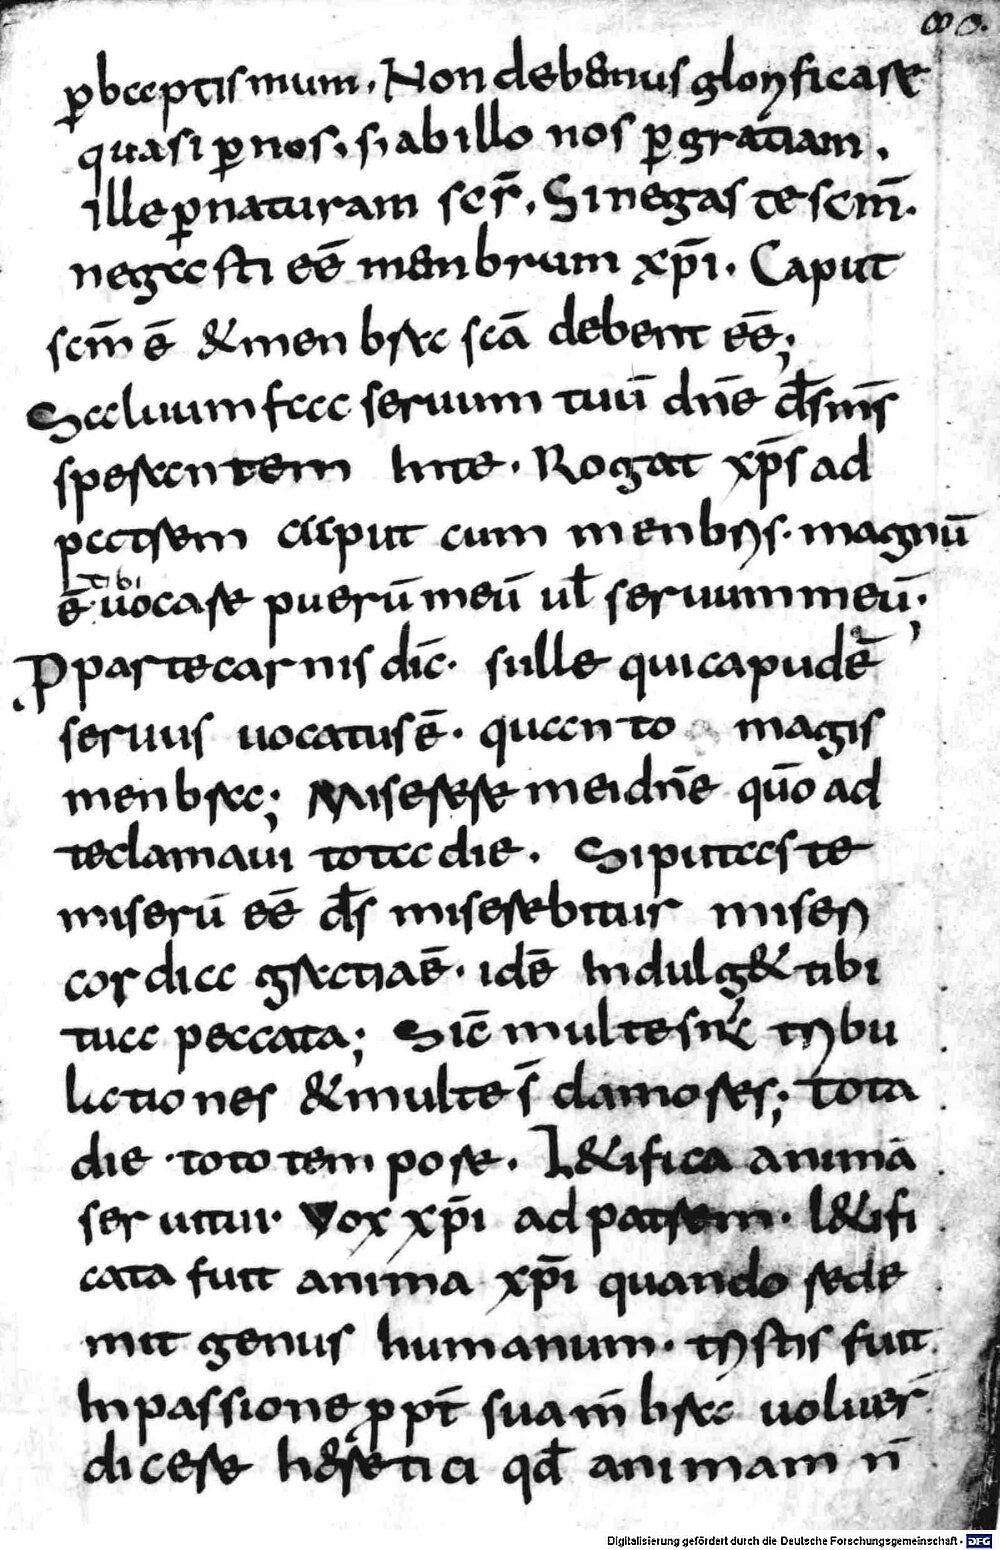 ꝑ baeptismum. Non debemus glorificare
quasi ꝑ nos. s; ab illo nos ꝑ gratiam.
ille ꝑ naturam scr̄. Si negas te scm̄.
negasti eē menbrum xp̄i. Caput
scm̄ ē & menbra scā debent eē;
Saluum fac seruum tuū dn̄e ds̄ ms̄
sperantem In te. Rogat xp̄s ad
patrem caput cum menbris. magnū
ē tibi uocare puerū meū ul̄ seruum meū;
Ꝑ parte carnis dic̄. si ille qui capud ē
seruus uocatus ē. quanto magis
menbra; Miserere mei dn̄e qūo ad
te clamaui tota die. Si putas te
miserū eē ds̄ miserebitur miseri
cordia gratia ē. idē Indulg& tibi
tua peccata; Sic̄ multe sn̄t tribu
lationes & multe s̄ clamores; tota
die. toto tempore. L&ifica animā
serui tui. Vox xp̄i ad patrem. l&ifi
cata fuit anima xp̄i quando rede
mit genus humanum. tristis fuit
In passione ꝓpt̄ sua m̄bra uoluer̄
dicere her&ici qd̄ animam n̄